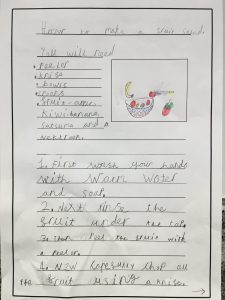 How to make fruit salad.
You will need
• peeler
• knife
• bowls
Kiwi banana
satsuma and a
1. First wash your hands
with warm water
and soap.
2. Next rinse the
fruit under the tap.
3. then peel the fruit with
a peeler.
4. Now carefully chop all
the fruit using a knife.